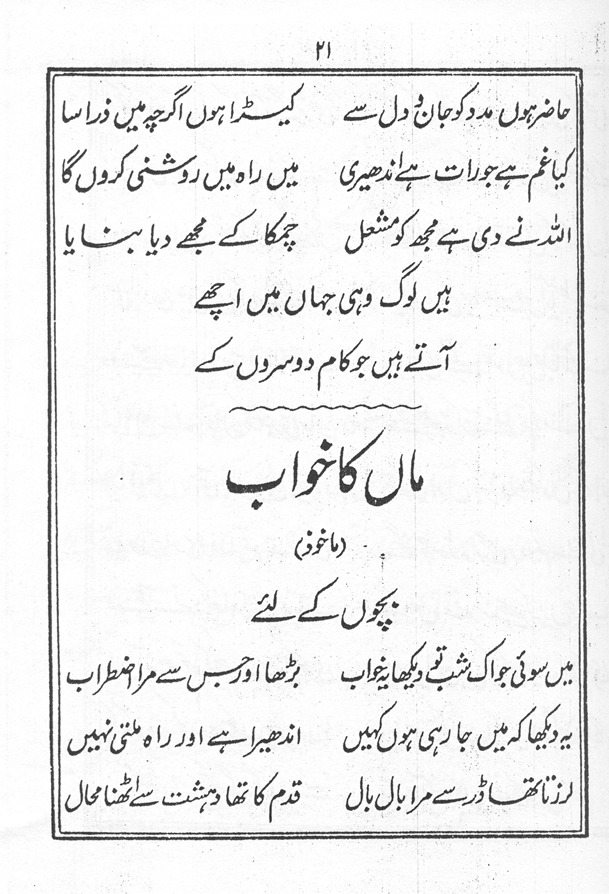 ۲۱
حاضر ہوں مدد کو جان و دل سے کیڑا ہوں اگرچہ میں ذرا سا
کیا غم ہے جو رات ہے اندھیری میں راہ میں روشنی کروں گا
اللہ نے دی ہے مجھ کو مشعل چمکا کے مجھے دیا بنایا
ہیں لوگ وہی جہاں میں اچھے
آتے ہیں جو کام دوسروں کے
ماں کا خواب
(ماخوذ)
بچوں کے لئے
میں سوئی جو اک شب تو دیکھا یہ خواب بڑھا اور جس سے مرا اضطراب
یہ دیکھا کہ میں جا رہی ہوں کہیں اندھیرا ہے اور راہ ملتی نہیں
لرزتا تھا ڈر سے مرا بال بال قدم کا تھا دہشت سے اٹھنا محال